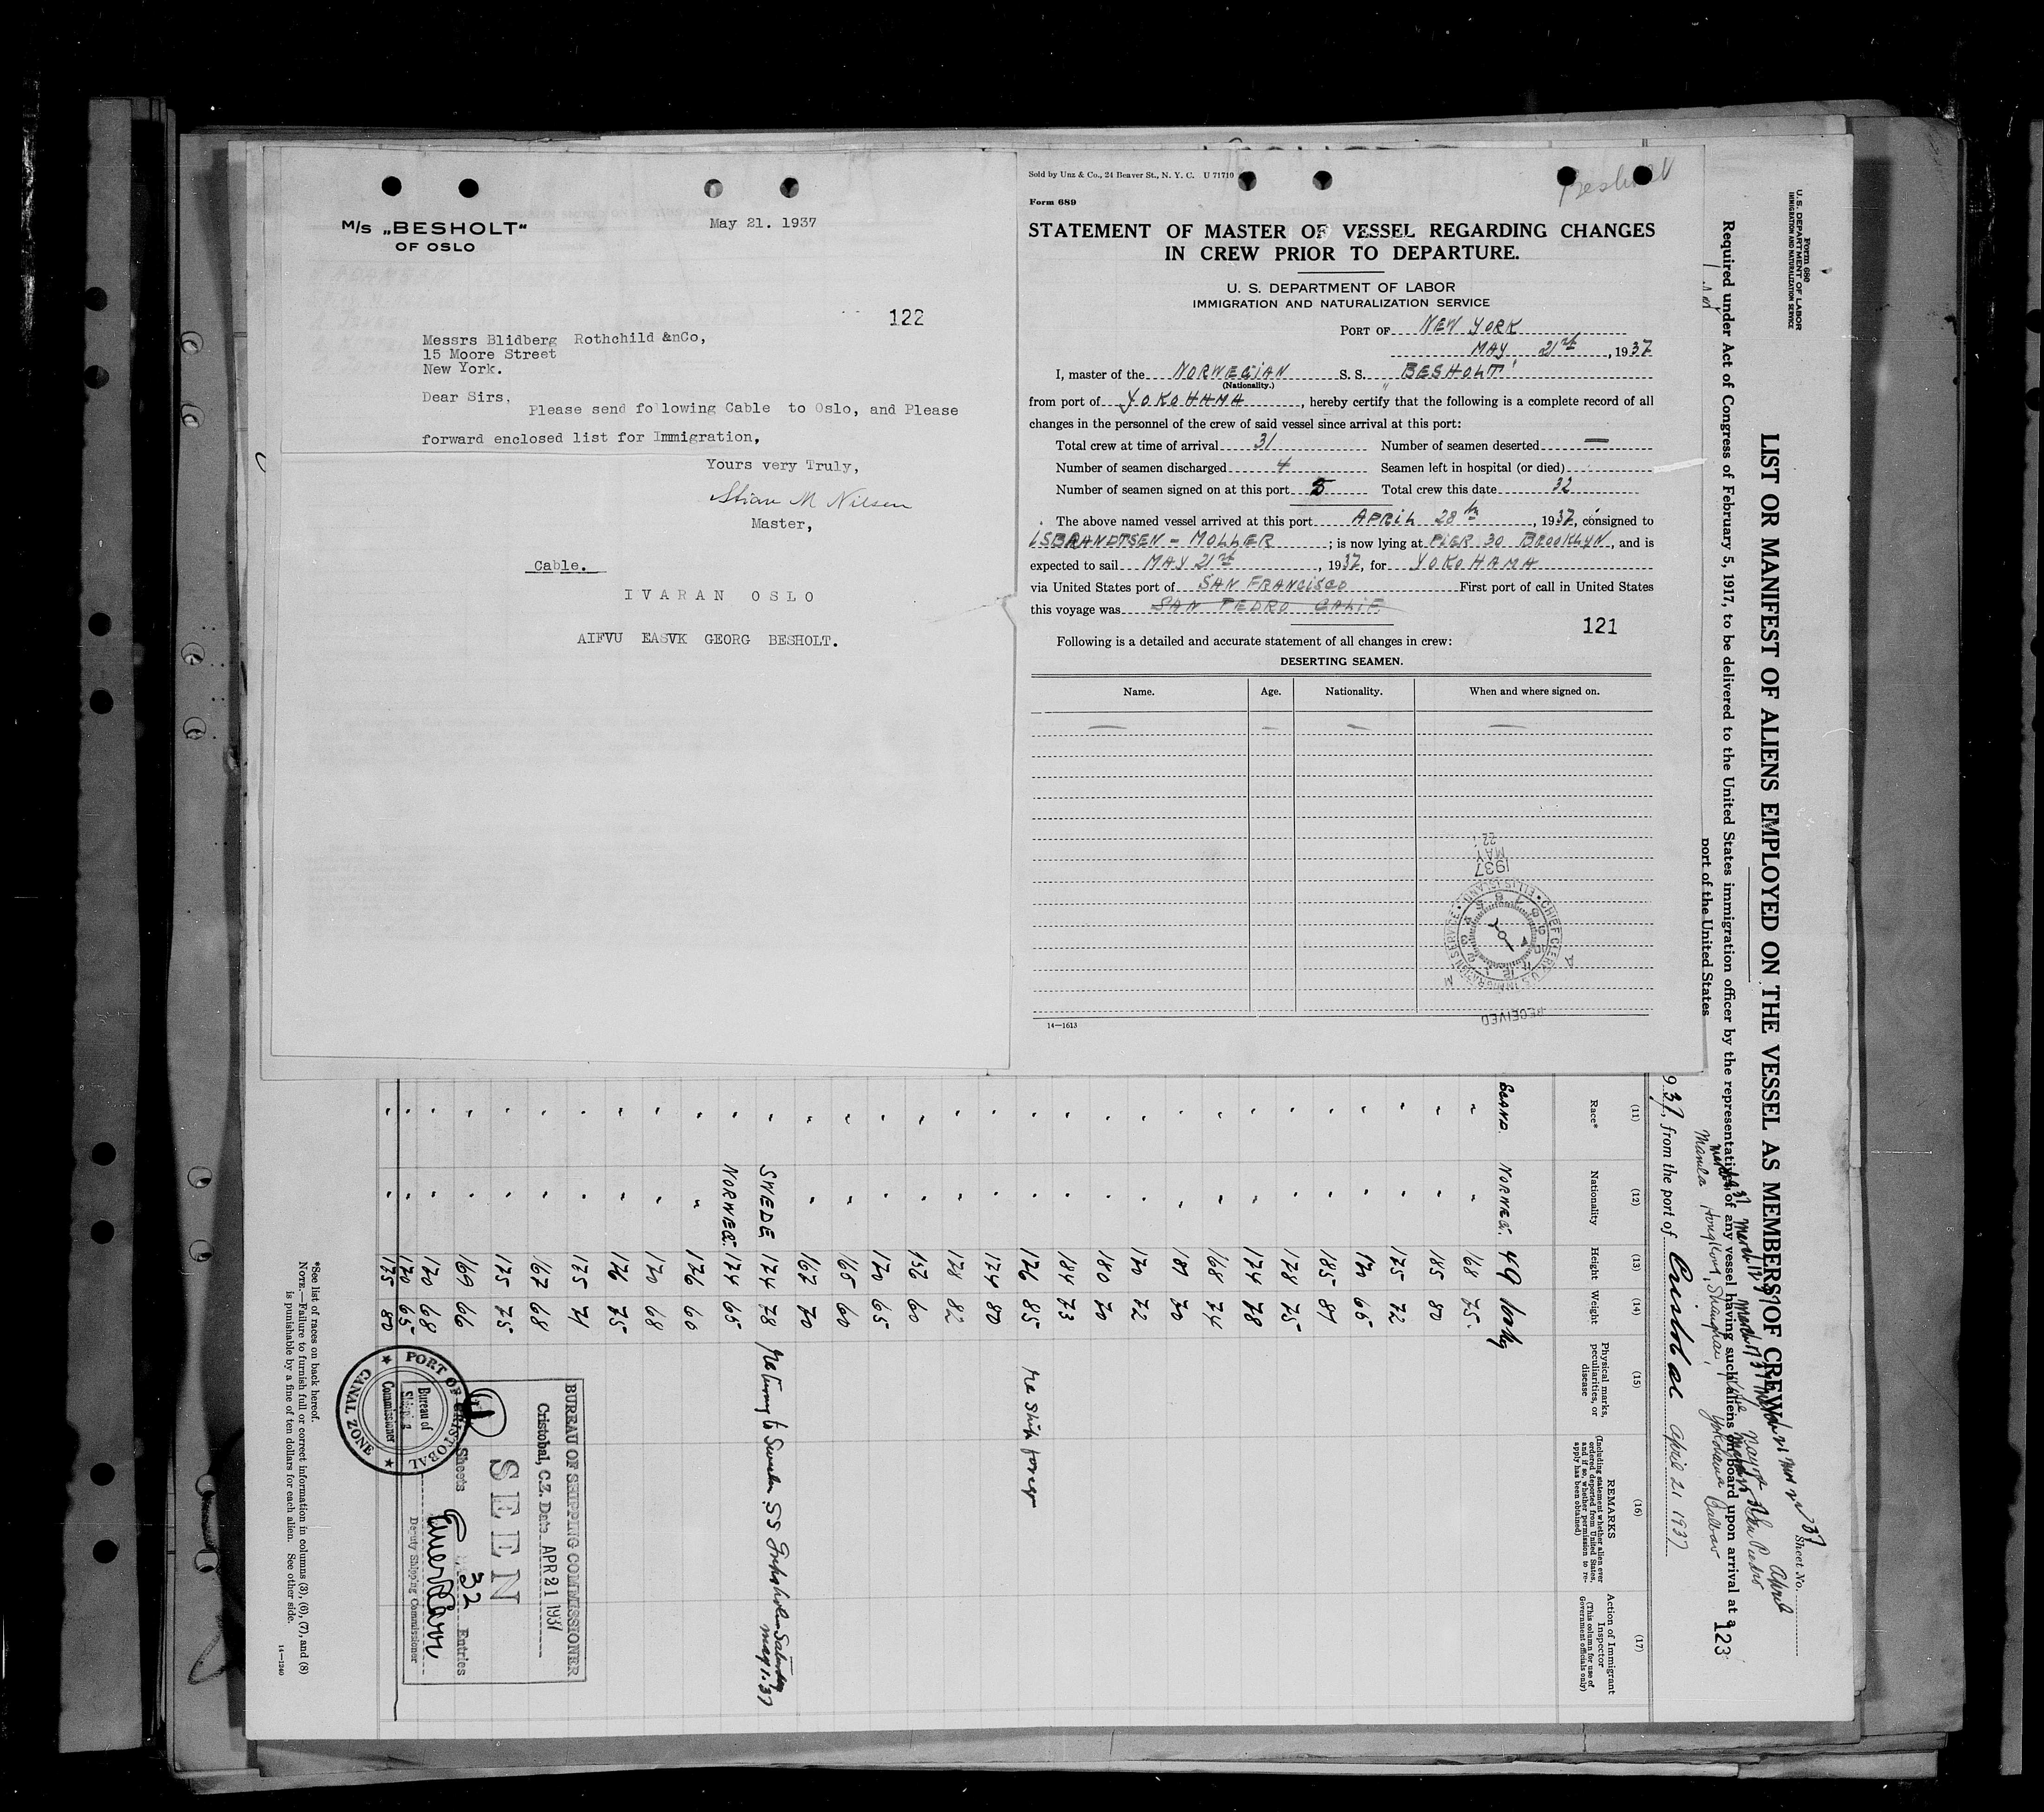 M/s „BESHOLT"
OF OSLO
May 21. 1937
122
Messrs Blidberg Rothchild &nCo,
15 Moore Street
New York.
Dear Sirs,
Please send following Cable to Oslo, and Please
forward enclosed list for Immigration,
Yours very Truly,
Stian M Nilsen
Master,
Cable.
IVARAN OSLO
AIFVU EASVK GEORG BESHOLT.
Sold by Unz & Co., 24 Beaver St., N. Y. C. U 71710
Besholt
Form 689
STATEMENT OF MASTER OF VESSEL REGARDING CHANGES
IN CREW PRIOR TO DEPARTURE.
U. S. DEPARTMENT OF LABOR
IMMIGRATION AND NATURALIZATION SERVICE
PORT OF NEW YORK
MAY 21st, 1937
I, master of the NORWEGIAN S. S. "BESHOLT"
(Nationality.)
from port of YOKOHAMA, hereby certify that the following is a complete record of all
changes in the personnel of the crew of said vessel since arrival at this port:
Total crew at time of arrival 31 Number of seamen deserted —
Number of seamen discharged 4 Seamen left in hospital (or died)
Number of seamen signed on at this port 5 Total crew this date 32
The above named vessel arrived at this port APRIL 28th, 1937, consigned to
ISBRANDTSEN - MOLLER; is now lying at PIER 30 BROOKLYN, and is
expected to sail MAY 21st, 1937, for YOKOHAMA
via United States port of SAN FRANCISCO First port of call in United States
this voyage was SAN PEDRO CALIF
121
Following is a detailed and accurate statement of all changes in crew:
DESERTING SEAMEN.
Name. Age. Nationality. When and where signed on.
— — — —
RECEIVED
CHIEF CLERK U.S. IMMIGRATION SERVICE ELLIS ISLAND
1937 MAY 22
14—1613
Form 680
U. S. DEPARTMENT OF LABOR
IMMIGRATION AND NATURALIZATION SERVICE
Sheet No.
LIST OR MANIFEST OF ALIENS EMPLOYED ON THE VESSEL AS MEMBERS OF CREW
Required under Act of Congress of February 5, 1917, to be delivered to the United States immigration officer by the representative of any vessel having such aliens on board upon arrival at a
port of the United States
123
Manila Hongkong, Shanghai, Yokohama Balboa
937, from the port of Cristobal April 21 1937
(11) (12) (13) (14) (15) (16) (17)
Race* Nationality Height Weight Physical marks, peculiarities, or disease REMARKS (Including statement whether alien ever ordered deported from United States, and if so, whether permission to reapply has been obtained) Action of Immigrant Inspector (This column for use of Government officials only)
SCAND. NORWEG. 49 100 kg
" " 168 75
" " 185 80
" " 175 72
" " 170 65
" " 185 87
" " 178 75
" " 174 78
" " 168 74
" " 181 70
" " 170 72
" " 180 70
" " 184 73
" " 176 85
" " 174 80
" " 178 82
" " 156 60
" " 170 65
" " 165 60
" " 167 70
" SWEDE 174 78 Returning to Sweden SS Gripsholm Saturday May 1. 37
" NORWEG. 174 65
" " 176 60
" " 170 68
" " 176 75
" " 175 71
" " 167 68
" " 175 75
" " 169 66
" " 170 68
" " 170 65
" " 175 80
BUREAU OF SHIPPING COMMISSIONER
Cristobal, C.Z. Date APR 21 1937
SEEN
Sheets 32 Entries
Deputy Shipping Commissioner
PORT OF CRISTOBAL
CANAL ZONE
Bureau of
Shipping
Commissioner
*See list of races on back hereof.
NOTE.—Failure to furnish full or correct information in columns (3), (6), (7), and (8)
is punishable by a fine of ten dollars for each alien. See other side.
14—1240